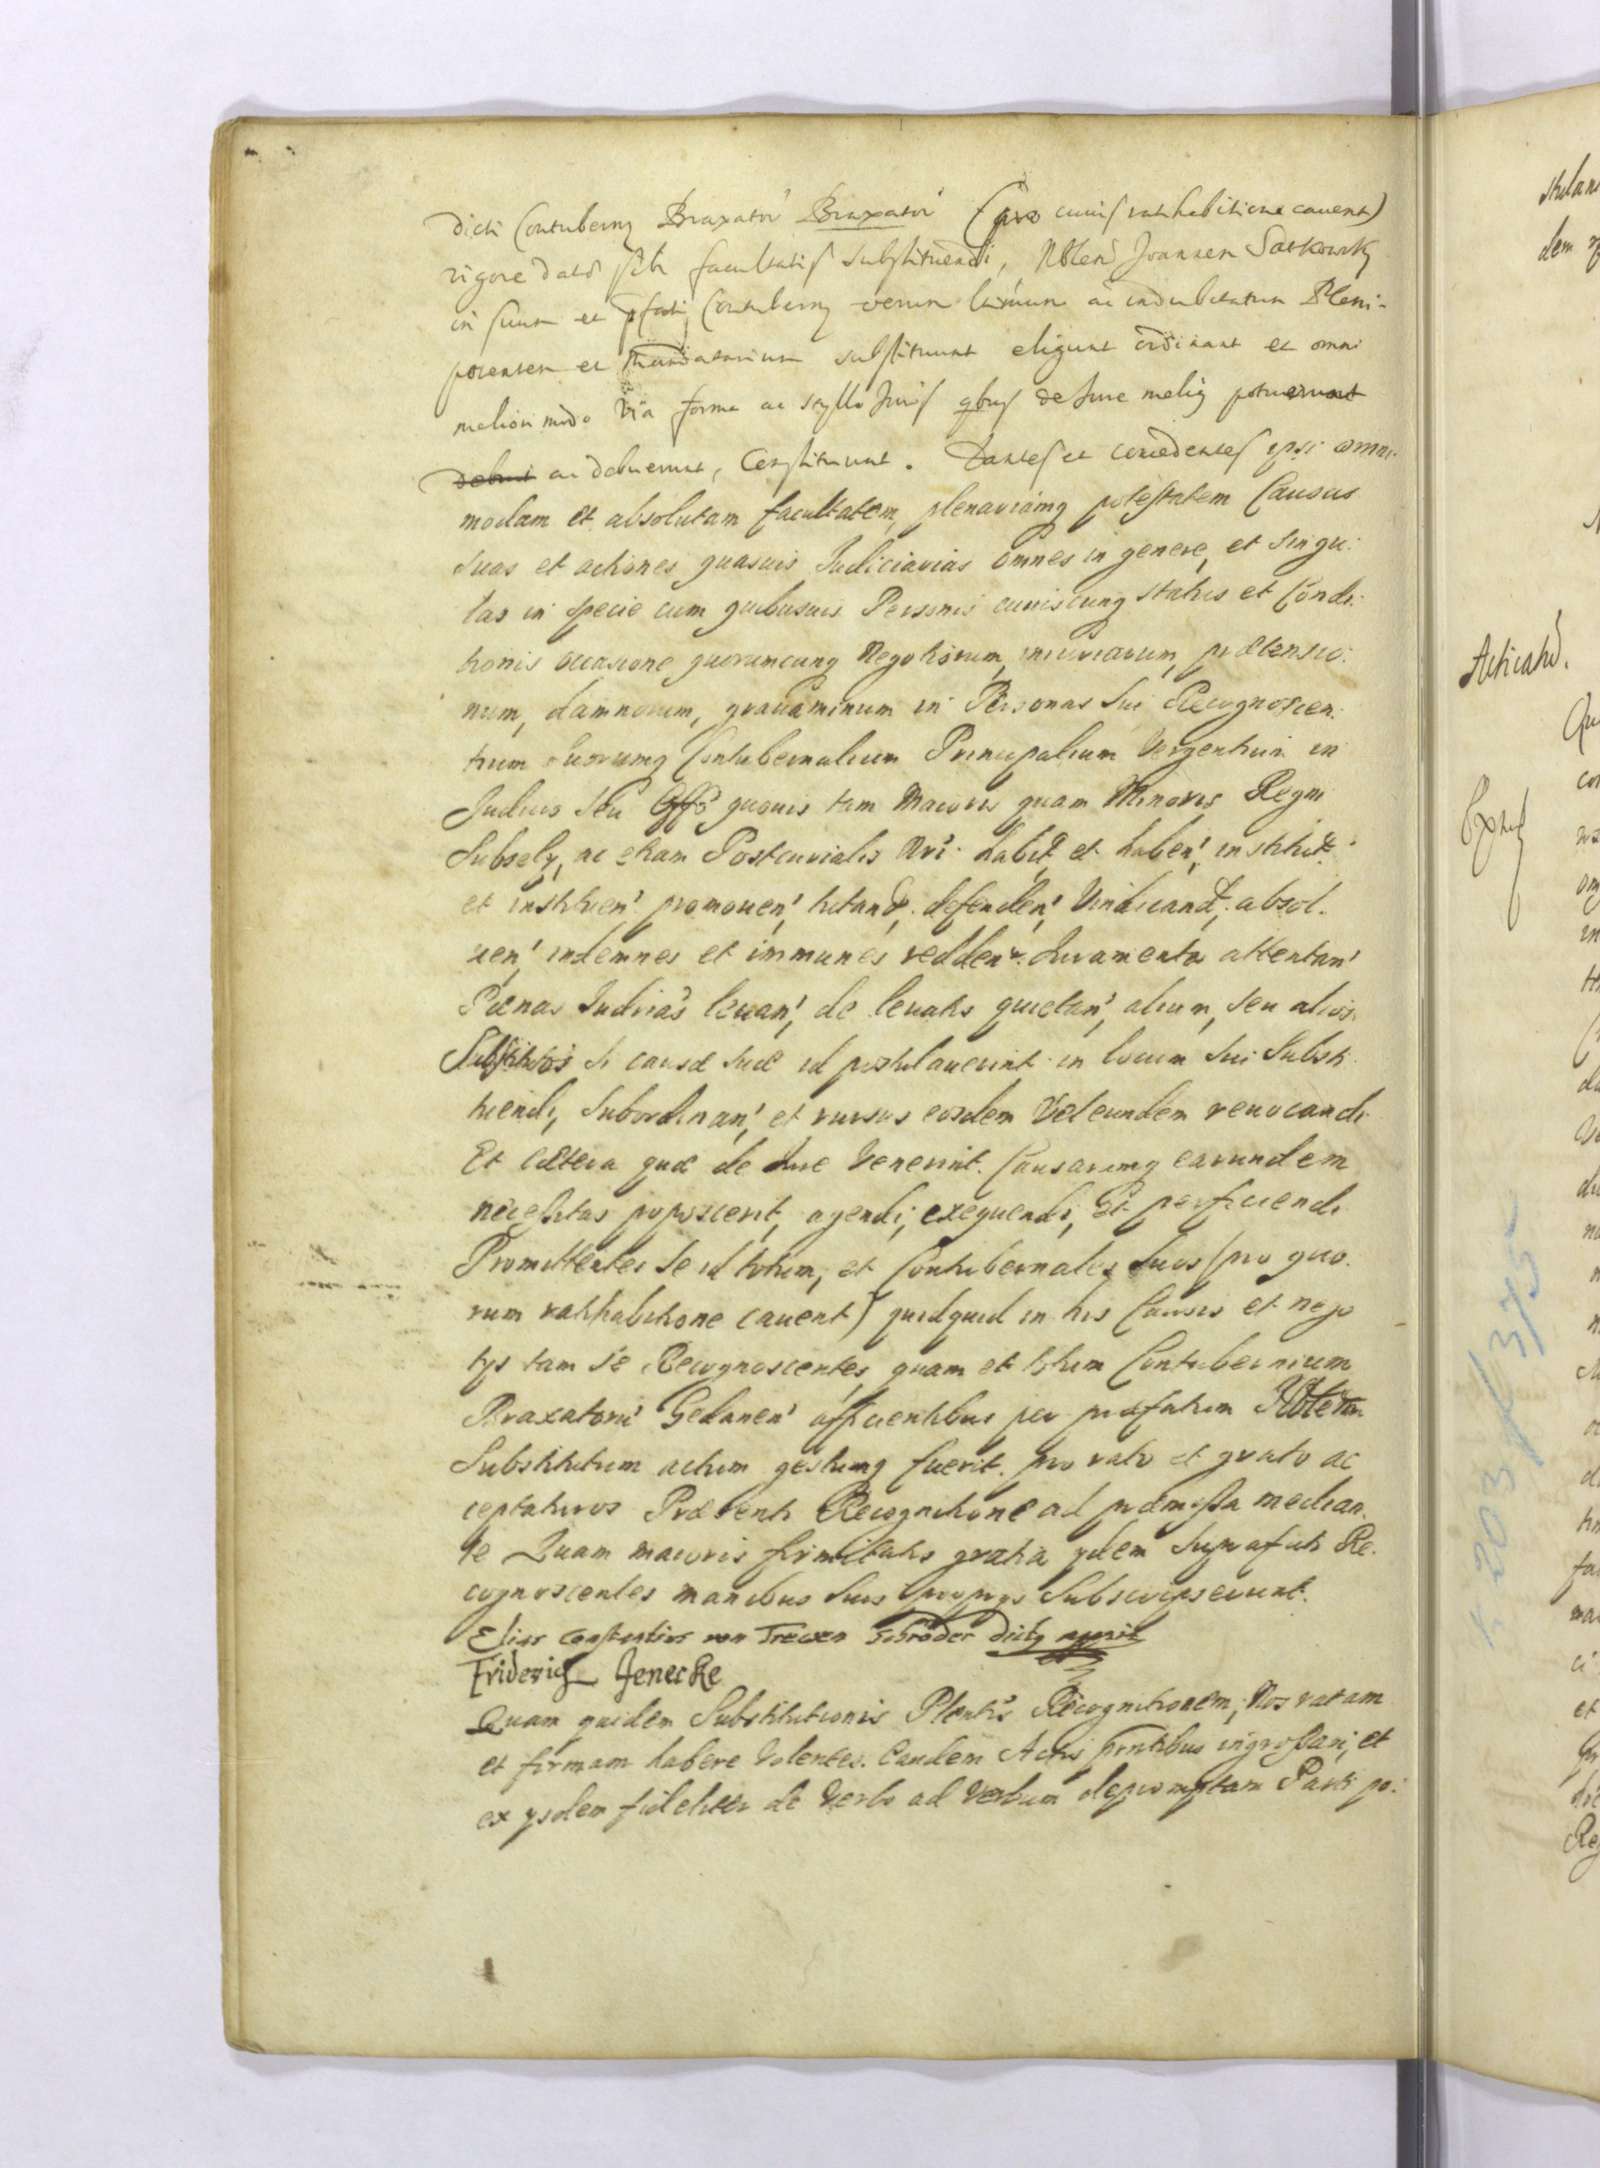 dicti Contubernÿ Braxator' Braxator' (pro cuius rathabitione cavent)
vigore datæ sibi facultatis substituendi, Nblem Joannem Satkowsky
in suum et pfati Contubernÿ verum ltimum ac indubitatum Pleni-
potentem et Mandatarium substituunt eligunt ordinant et omni
meliori modo via forma ac styllo Juris qbus de Jure meliq potuerunt
debuer ac debuerunt, Constituunt. Dantes et concedentes ipsi omni-
modam et absolutam facultatem, plenariamq potestatem Causas
suas et actiones quasuis Judiciarias omnes in genere, et singu-
las in specie cum quibusuis Personis cuiuscunq status et Condi-
tionis occasione quoruncunq Negotiorum, iniuriarum, prætensio-
num, damnorum, grauaminum in Personas sui Recognoscen-
tium suorumq Contubernalium Principalium Vergentium in
Judicio seu Offo quouis tam Maioris quam Minoris Regni
Subsely, ac etiam Postcurialis Nri habit. et haben', institut.
et instituen' promouen', tutand. defenden', Vindicand. absol-
uen', indemnes et immunes redden'. Juramenta attentan'
Pœnas Judrias leuan', de leuatis quietan', alium, seu alios
Substitutos si causæ suæ id postulauerint in locum sui Substi-
tuendi, Subordinan', et rursus eosdem Vel eundem reuocandi
Et cætera quæ de Jure Venerint. Causarumq earundem
necessitas poposcerit, agendi, exequendi, Et perficiendi
Promittentes se id totum, et Contubernales suos (pro quo-
rum rathabitione cauent) quidquid in his Causis et nego
tys tam se Recognoscentes, quam et totum Contubernium
Braxatorů Gedanen' afficientibus per præfatum Nblem
Substitutum actum gestumq fuerit. pro rato et grato ac
ceptaturos Præsenti Recognitione ad præmissa median-
te Quam maioris firmitatis gratia ydem suprafati Re-
cognoscentes manibus suis proprys Subscripserunt.
Elias Constantius von Trewen Schröder dictq mpria
Friderich Jenecke
Quam quidem Substitutionis Plentis Recognitionem, Nos ratam
et firmam habere Volentes. Eandem Actis pntibus ingrossari, et
ex ysdem fideliter de Verbo ad Verbum depromptam Parti po-
Acticatio.
k 203 / 375